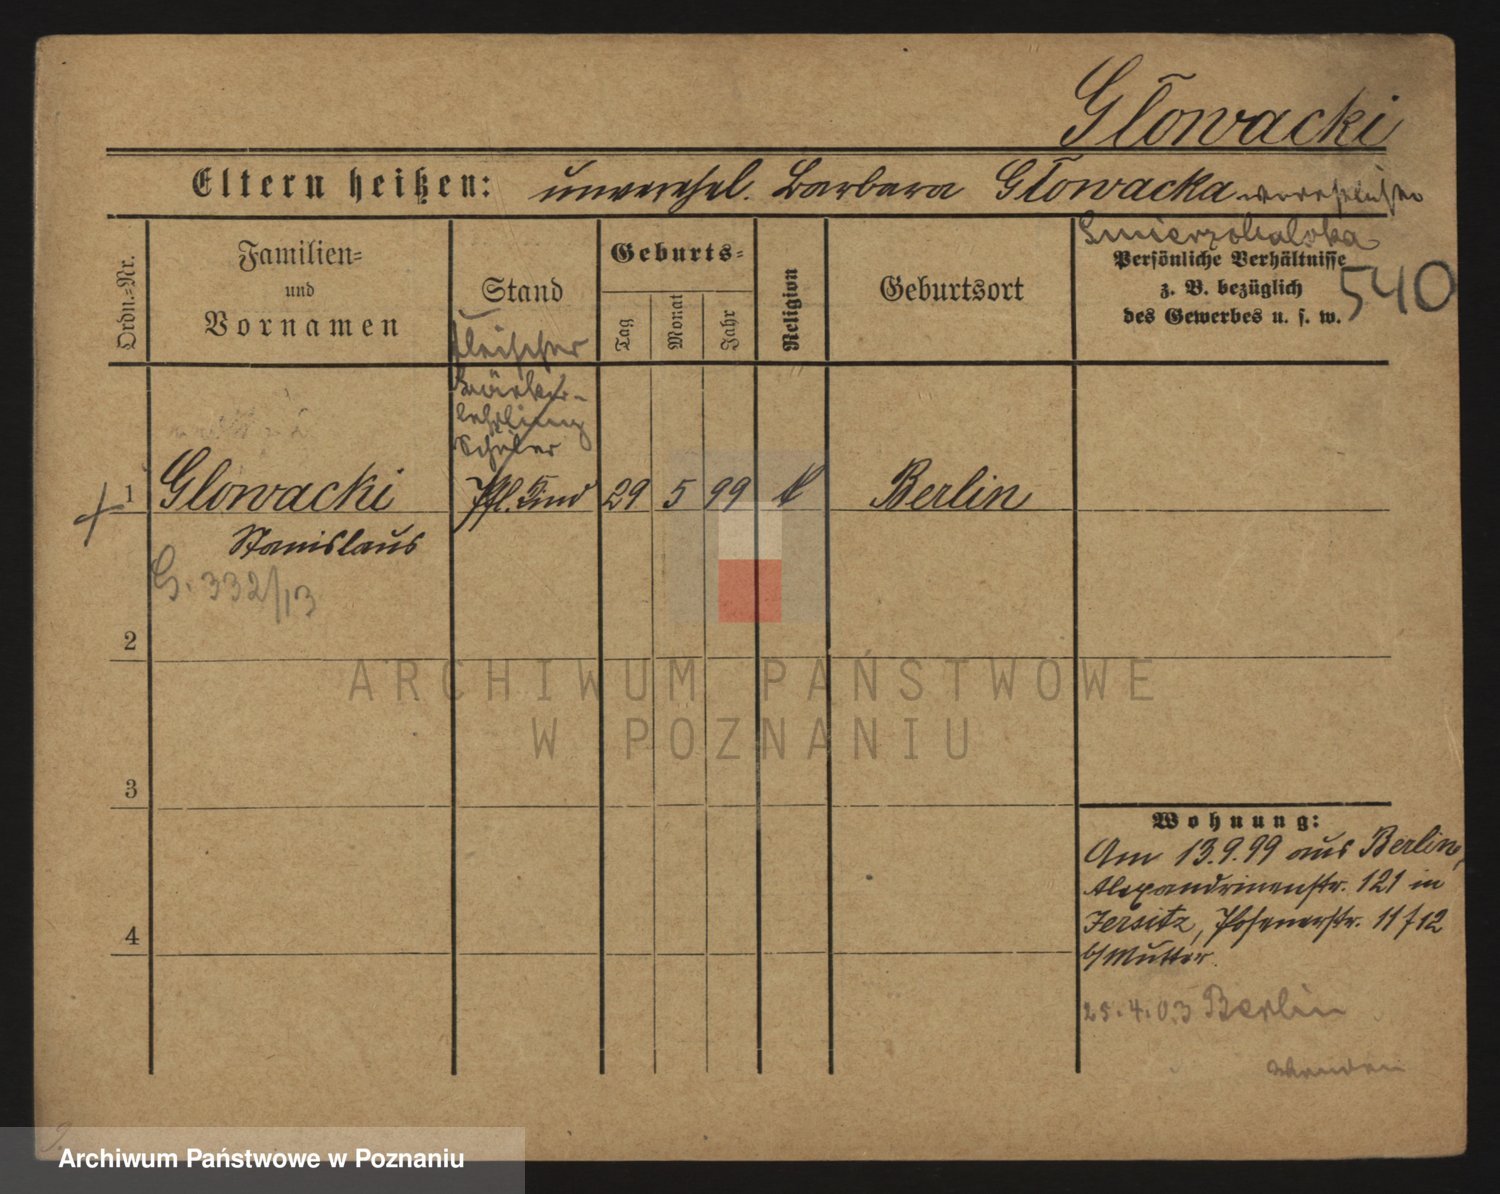 Głowacki
Eltern heißen: unverehel. Barbara Głowacka verehelichte
Smierzchalska
Ordn.-Nr.
Familien-
und
Vornamen
Stand
Geburts-
Tag
Monat
Jahr
Religion
Geburtsort
Persönliche Verhältnisse
z. B. bezüglich
des Gewerbes u. s. w.
540
Fleischer
lehrling
Schüler
1 Glowacki Pfl. Kind 29 5 99 k Berlin
Stanislaus
G. 332/13
2
3
4
Wohnung:
Am 13.9.99 aus Berlin,
Alexandrinenstr. 121 in
Jersitz, Posenerstr. 11/12
b/Mutter.
25.4.03 Berlin
wenden
ARCHIWUM PAŃSTWOWE
W POZNANIU
Archiwum Państwowe w Poznaniu